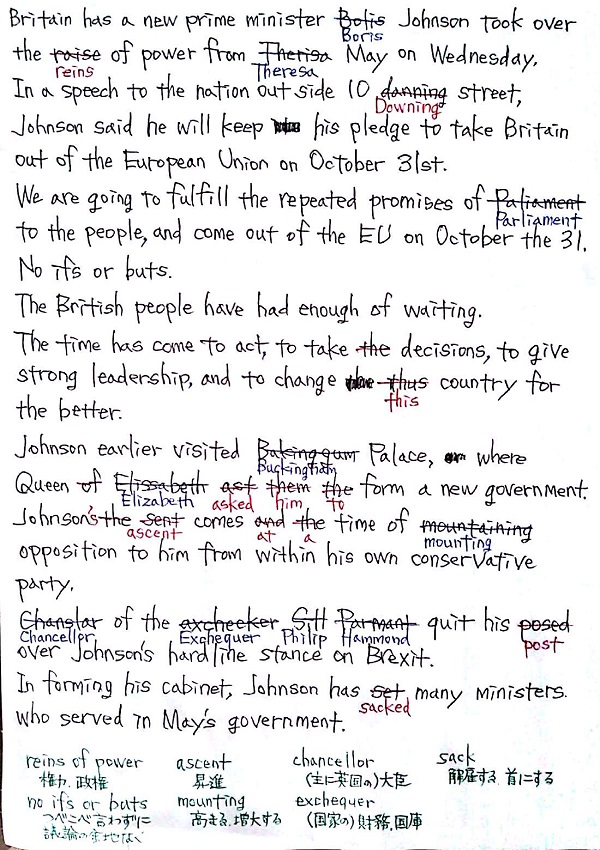 Britain has a new prime minister Bolis Johnson took over
Boris
the raise of power from Therisa May on Wednesday.
reins Theresa
In a speech to the nation out side 10 danning street,
Downing
Johnson said he will keep his pledge to take Britain
out of the European Union on October 31st.
We are going to fulfill the repeated promises of Paliament
Parliament
to the people, and come out of the EU on October the 31.
No ifs or buts.
The British people have had enough of waiting.
The time has come to act, to take the decisions, to give
strong leadership, and to change thus country for
this
the better.
Johnson earlier visited Palace, where
Buckingham
Queen of Elissabeth ast them the form a new government.
Elizabeth asked him to
Johnson's the sent comes and the time of mountaining
ascent at a mounting
opposition to him from within his own conservative
party.
Chanslar of the axcheeker Sill Parmant quit his posed
Chancellor Exchequer Philip Hammond post
over Johnson's hard line stance on Brexit.
In forming his cabinet, Johnson has set many ministers.
sacked
who served in May's government.
reins of power ascent chancellor sack
権力、政権 昇進 (主に英国の)大臣 解雇する、首にする
no ifs or buts mounting exchequer
つべこべ言わずに 高まる、増大する (国家の)財務、国庫
議論の余地なく